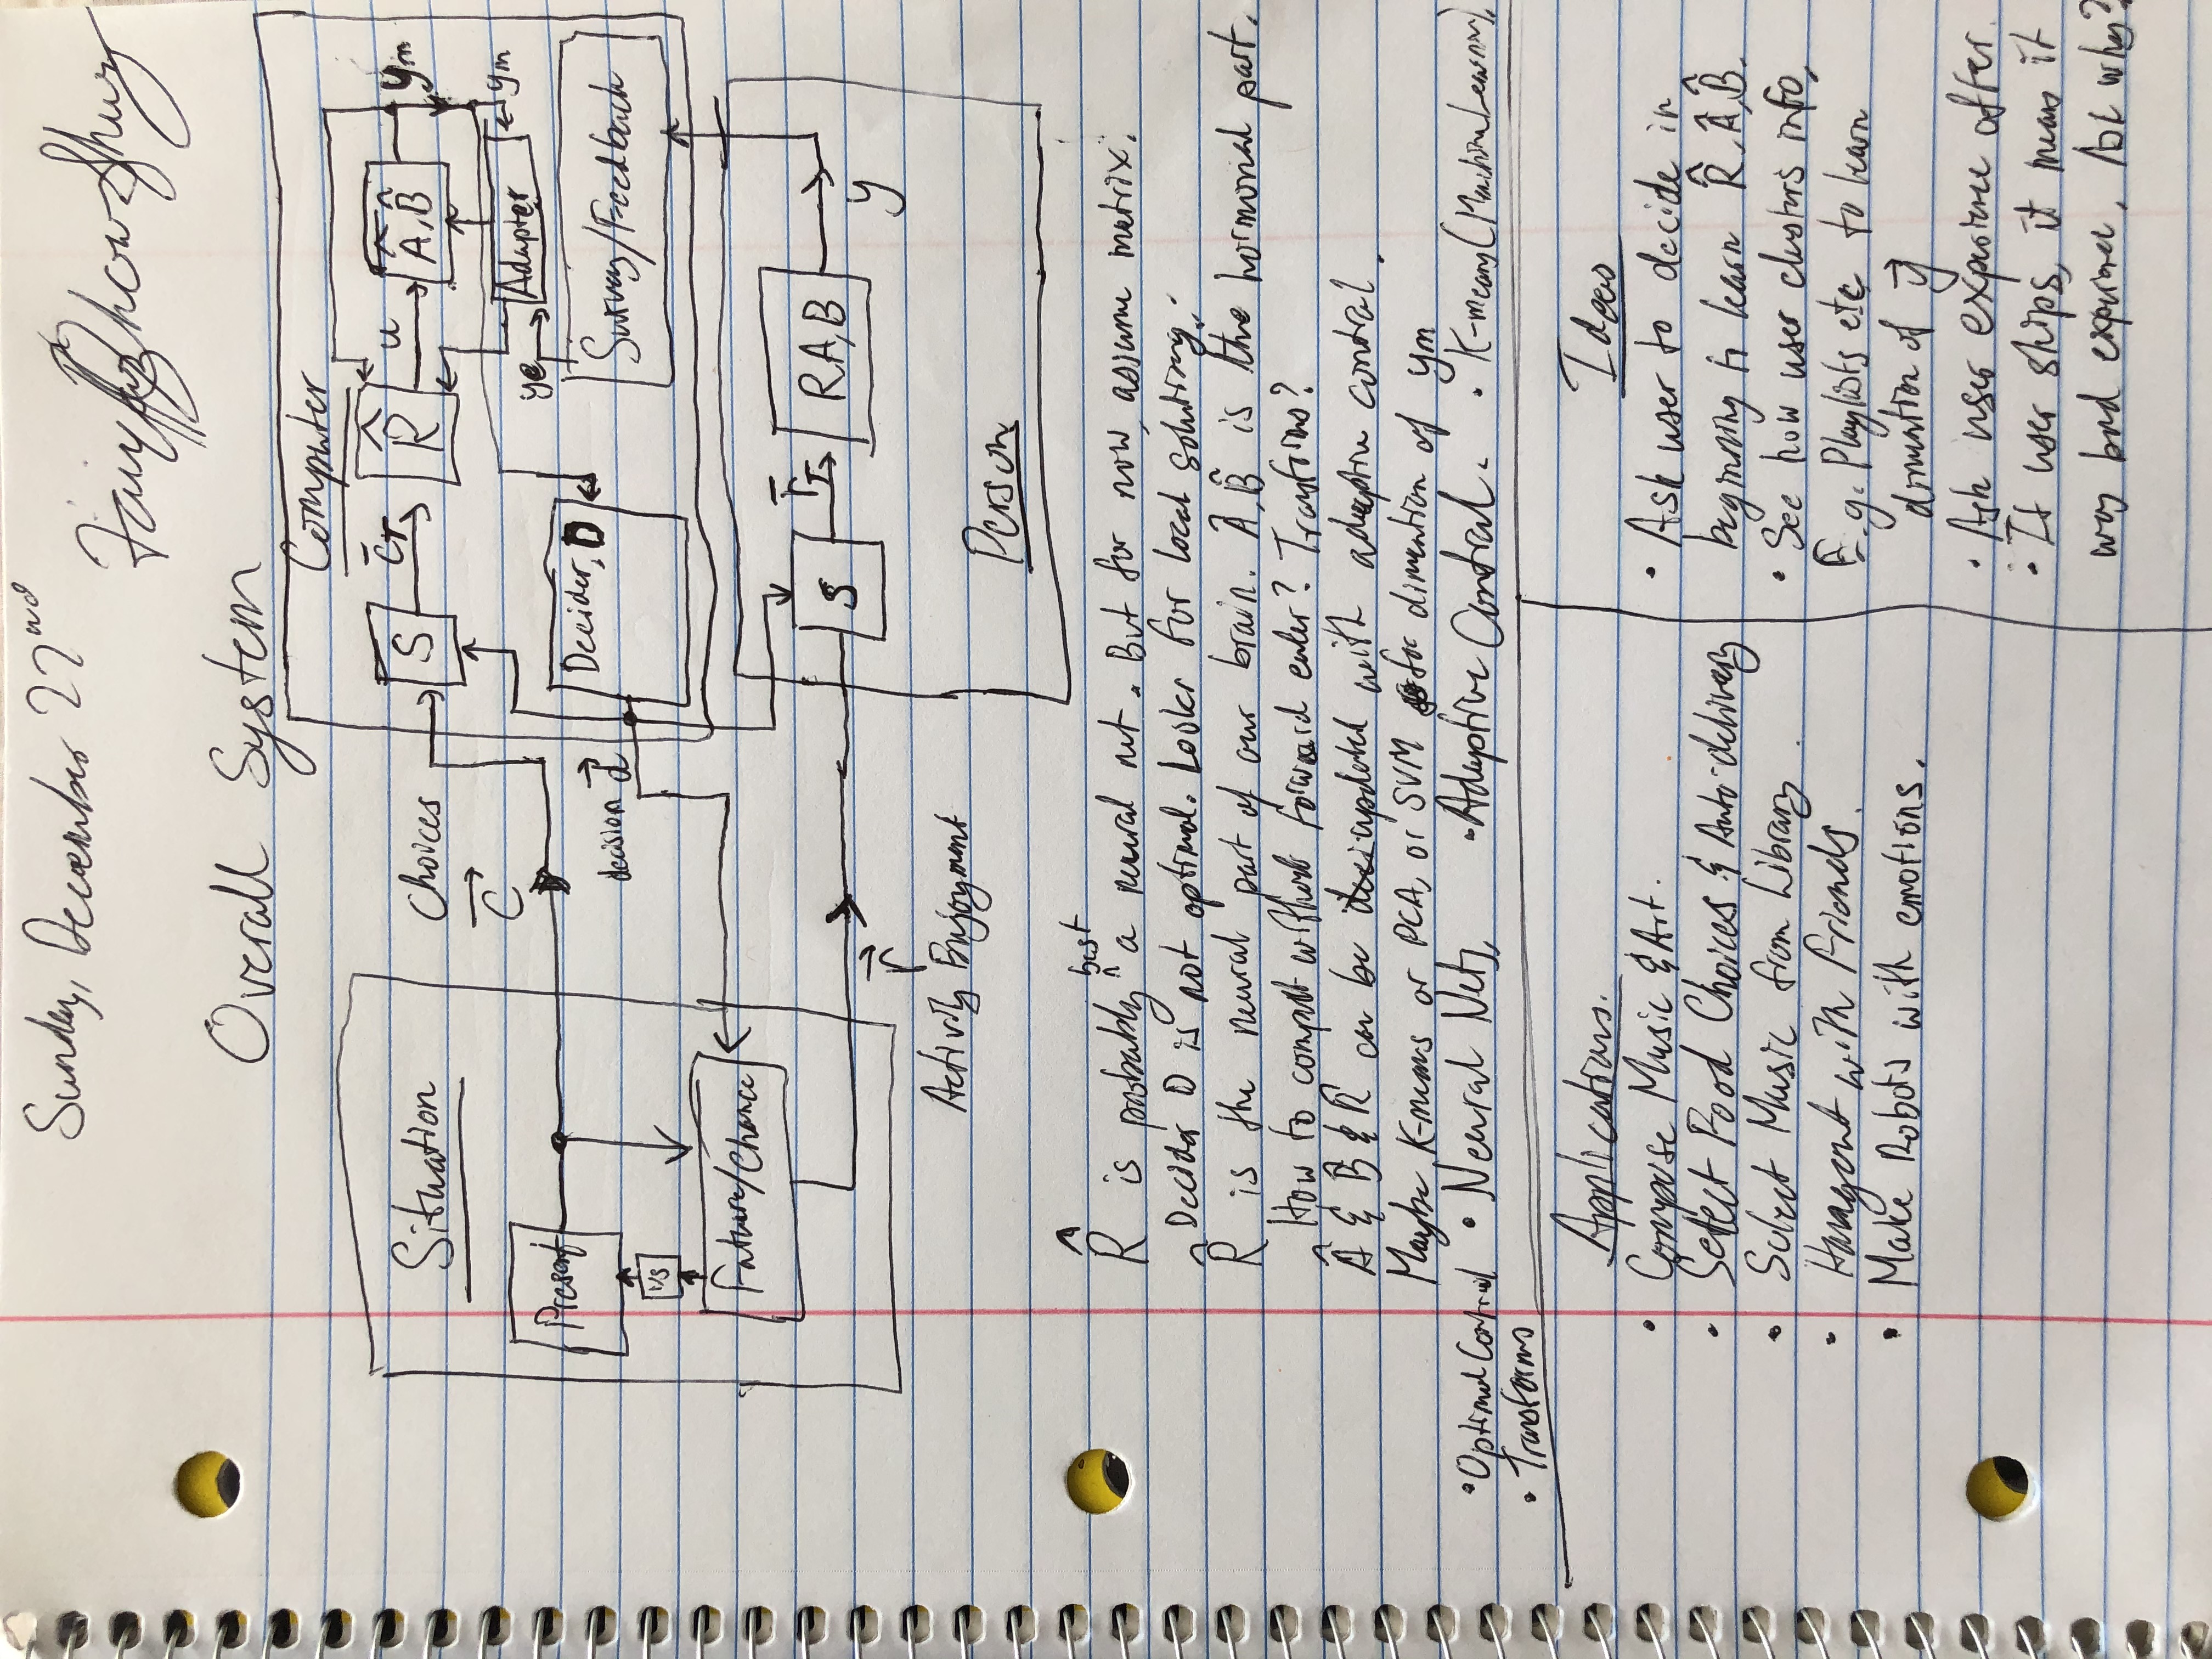 Sunday, December 22nd
Overall System
Computer
Situation
Choices
C⃗
S
c̄r
R̂
u
Â,B̂
ym
ym
Adapter
ye
Present
1/s
decision d⃗
Decider, D
Survey/Feedback
Future/Chance
S
r̄r
R,A,B
y
r⃗
Activity Enjoyment
Person
R̂ is probably ^best a neural net. But for now, assume matrix.
Decider D is not optimal. Looks for local solutions.
R̂ is the neural part of our brain. Â,B̂ is the hormonal part.
How to comput without forward euler? Transforms?
Â & B̂ & R̂ can be updated with adaptive control.
Maybe K-means or PCA, or SVM for dimention of ym
• Optimal Control • Neural Nets, • Adaptive Control. • K-means (Machine Learning).
• Transforms
Applications.
• Compose Music & Art.
• Select Food Choices & Auto-delivery
• Select Music from Library.
• Hangout with Friends.
• Make Robots with emotions.
Ideas
• Ask user to decide in
beginning to learn R̂,Â,B̂.
• See how user clusters info,
E.g. Playlists etc to learn
dimention of y⃗
• Ask user experience after.
• If user skips, it means it
was bad experience. Ask why?